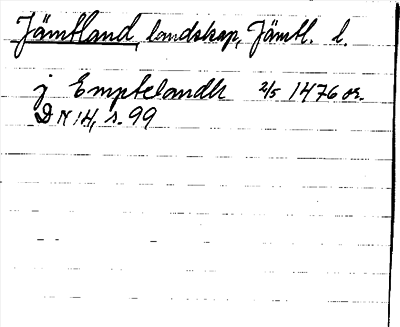 Jämtland, landskap, Jämtl. l.
j Emptelandh 2/5 1476 or.
DN 14, s. 99